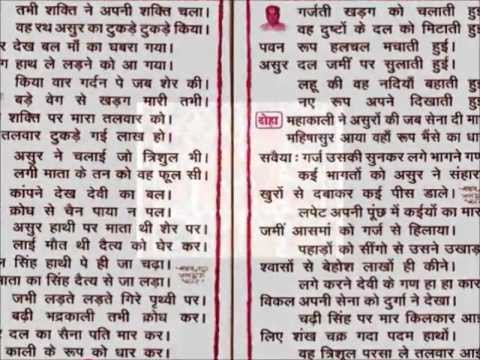 तभी शक्ति ने अपनी शक्ति चला।
वह रथ असुर का टुकड़े टुकड़े किया।
देख बल माँ का घबरा गया।
हाथ ले लड़ने को आ गया।
किया वार गर्दन पे जब शेर की।
बड़े वेग से खड़ग मारी तभी।
शक्ति पर मारा तलवार को।
तलवार टुकड़े गई लाख हो।
असुर ने चलाई जो त्रिशुल भी।
लगी माता के तन को वह फूल सी।
कांपने देख देवी का बल।
क्रोध से चैन पाया न पल।
असुर हाथी पर माता थी शेर पर।
लाई मौत थी दैत्य को घेर कर।
सिंह हाथी पे ही जा चढ़ा।
माता का सिंह दैत्य से जा लड़ा।
जभी लड़ते लड़ते गिरे पृथ्वी पर।
बढ़ी भद्रकाली तभी क्रोध कर।
दल का सैना पति मार कर।
काली के रूप को धार कर।
गर्जती खड़ग को चलाती हुई।
वह दुष्टों के दल को मिटाती हुई।
पवन रूप हलचल मचाती हुई।
असुर दल जमीं पर सुलाती हुई।
लहू की वह नदियाँ बहाती हुई।
नए रूप अपने दिखाती हुई।
दोहा महाकाली ने असुरों की जब सेना दी
महिषासुर आया वहाँ रूप भैंसे का
सवैया: गर्ज उसकी सुनकर लगे भागने
कई भागतों को असुर ने
खुरों से दबाकर कई पीस डाले।
लपेट अपनी पूंछ में कईयों का
जमीं आसमां को गर्ज से हिलाया।
पहाड़ों को सींगो से उसने
श्वासों से बेहोश लाखों ही कीने।
लगे करने देवी के गण हा हा
विकल अपनी सेना को दुर्गा ने देखा।
चढ़ी सिंह पर मार किलकार
लिए शंख चक्र गदा पदम हाथों।
वह त्रिशूल परसा ले तलवार